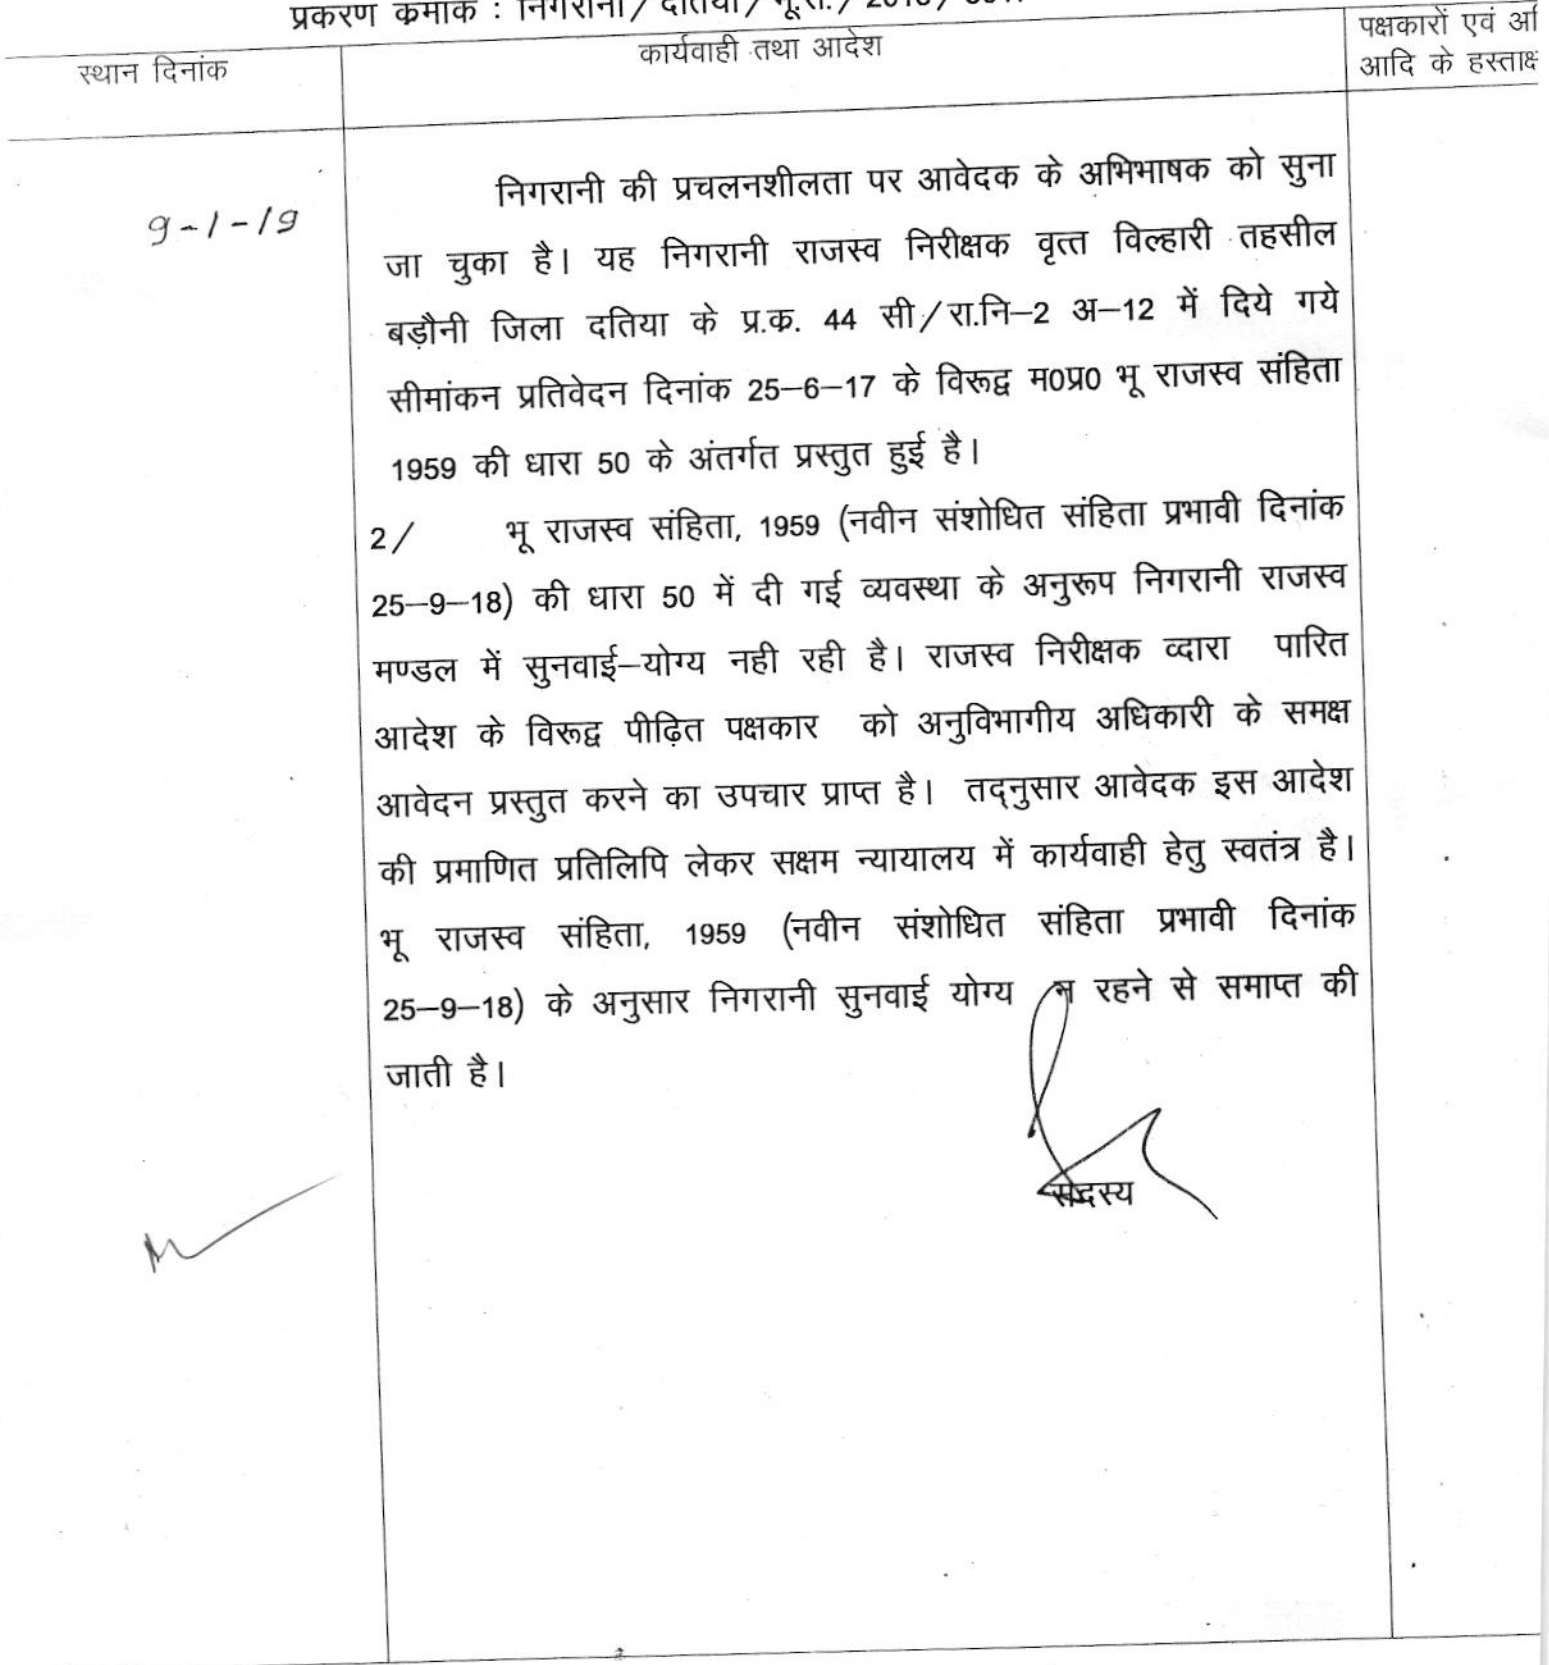 प्रकरण क्रमांक : निगरानी / दतिया / भू.रा. / 2018 /
स्थान दिनांक
कार्यवाही तथा आदेश
पक्षकारों एवं
आदि के
9-1-19
निगरानी की प्रचलनशीलता पर आवेदक के अभिभाषक को सुना
जा चुका है। यह निगरानी राजस्व निरीक्षक वृत्त विल्हारी तहसील
बड़ौनी जिला दतिया के प्र.क. 44 सी/रा.नि–2 अ–12 में दिये गये
सीमांकन प्रतिवेदन दिनांक 25–6–17 के विरूद्व म0प्र0 भू राजस्व संहिता
1959 की धारा 50 के अंतर्गत प्रस्तुत हुई है।
2/ भू राजस्व संहिता, 1959 (नवीन संशोधित संहिता प्रभावी दिनांक
25–9–18) की धारा 50 में दी गई व्यवस्था के अनुरूप निगरानी राजस्व
मण्डल में सुनवाई–योग्य नही रही है। राजस्व निरीक्षक व्दारा पारित
आदेश के विरूद्व पीढ़ित पक्षकार को अनुविभागीय अधिकारी के समक्ष
आवेदन प्रस्तुत करने का उपचार प्राप्त है। तद्नुसार आवेदक इस आदेश
की प्रमाणित प्रतिलिपि लेकर सक्षम न्यायालय में कार्यवाही हेतु स्वतंत्र है।
भू राजस्व संहिता, 1959 (नवीन संशोधित संहिता प्रभावी दिनांक
25–9–18) के अनुसार निगरानी सुनवाई योग्य न रहने से समाप्त की
जाती है।
सदस्य